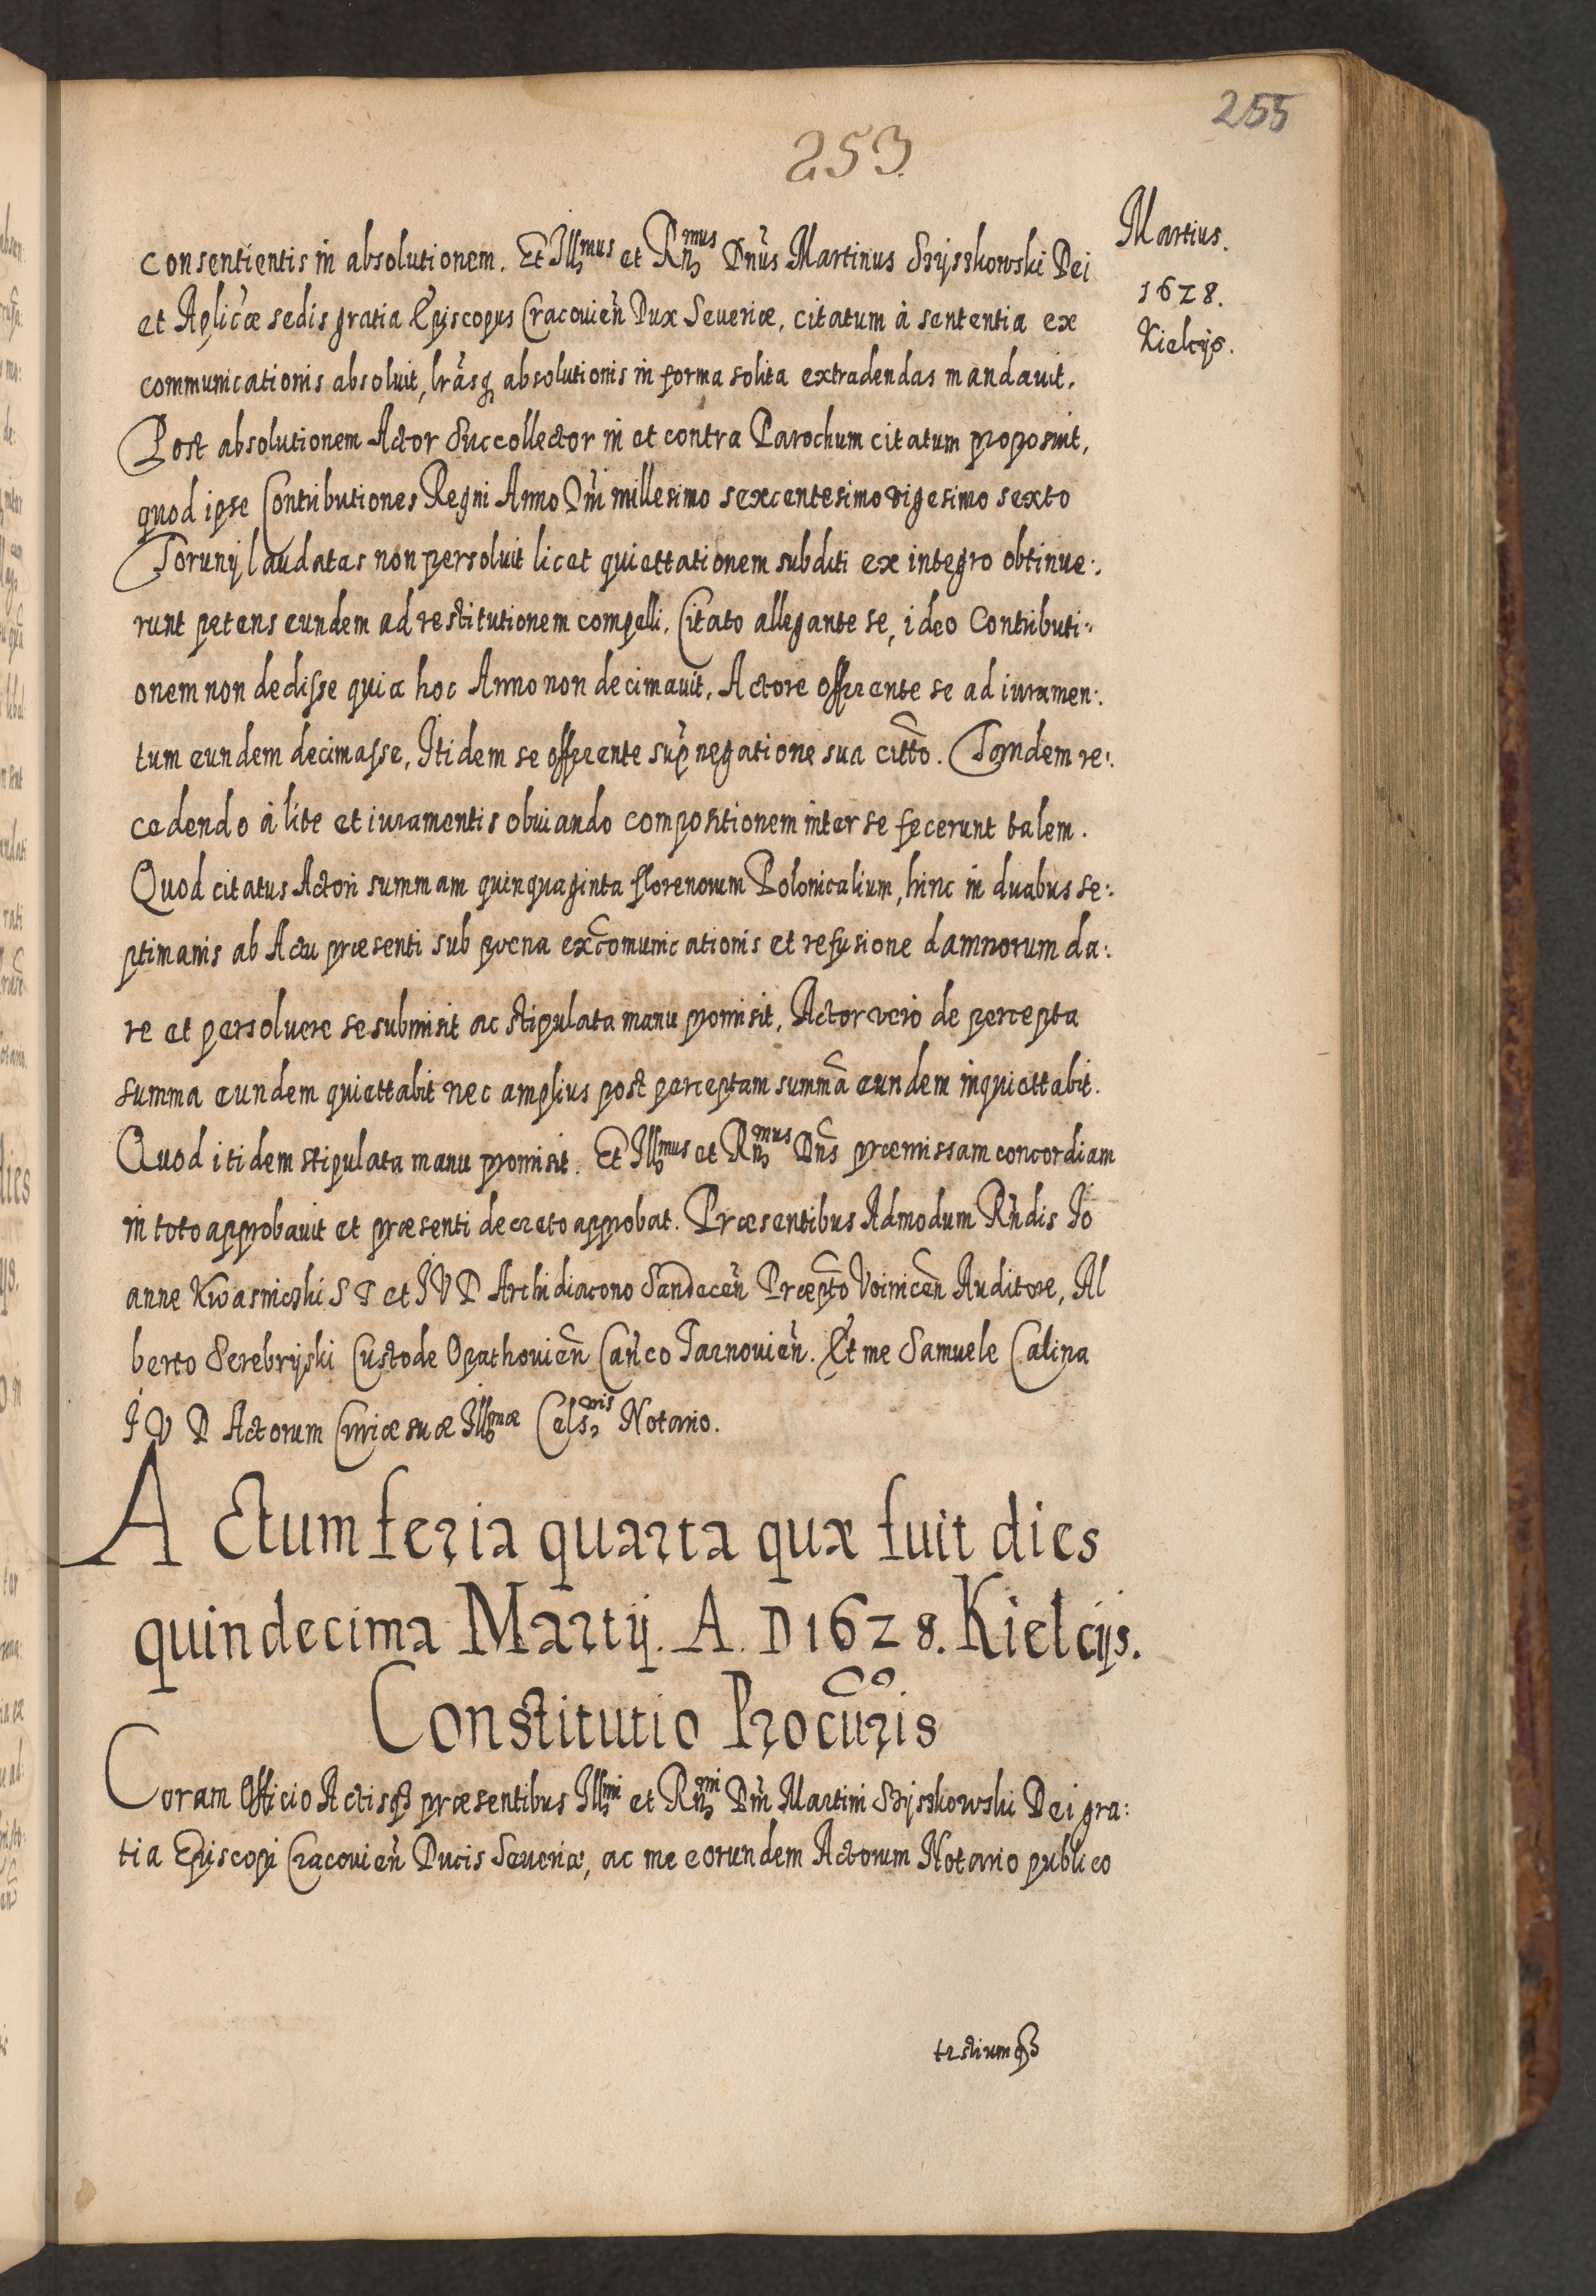 255
253.
Martius.
1628.
Kielcijs.
consentientis in absolutionem. Et Illmus et Rnmus Dnus Martinus Szijszkowski Dei
et Aplicæ sedis gratia Episcopus Cracovien Dux Severiæ, citatum à sententia ex
communicationis absoluit, lrasq absolutionis in forma solita extradendas mandauit.
Post absolutionem Actor Succollector in et contra Parochum citatum proposuit,
quod ipse Contributiones Regni Anno Dni millesimo sexcentesimo vigesimo sexto
Torunij laudatas non persoluit licet quiettationem subditi ex integro obtinue:.
runt petens eundem ad restitutionem compelli. Citato allegante se, ideo Contributi:
onem non dedisse quia hoc Anno non decimauit, Actore offerente se ad iuramen:.
tum eundem decimasse, Itidem se offerente sup negatione sua citto. Tandem re:.
cedendo à lite et iuramentis obuiando compositionem inter se fecerunt talem.
Quod citatus Actori summam quinquaginta florenorum Polonicalium, hinc in duabus se:.
ptimanis ab Actu præsenti sub poena excomunicationis et refusione damnorum da:.
re et persoluere se submisit ac stipulata manu promisit, Actor vero de percepta
summa eundem quiettabit nec amplius post perceptam summa eundem inquiettabit.
Quod itidem stipulata manu promisit. Et Illmus et Rnmus Dns præmissam concordiam
in toto approbauit et præsenti decreto approbat. Præsentibus Admodum Rndis Io
anne Kwasnicski S T et I V D Archidiacono Sandecen Præpto Voinicen Auditore, Al
berto Serebrijski Custode Opathovien Canco Tarnovien. Et me Samuele Calina
I V D Actorum Curiæ suæ Illmæ Celsnis Notario.
ACtum feria quarta quæ fuit dies
quindecima Martij. A. D 1628. Kielcijs.
Constitutio Procuris
Coram Officio Actisq præsentibus Illmi et Rnmi Dni Martini Szijszkowski Dei gra:
tia Episcopi Cracovien Ducis Severiæ, ac me eorundem Actorum Notario publico
testiumq